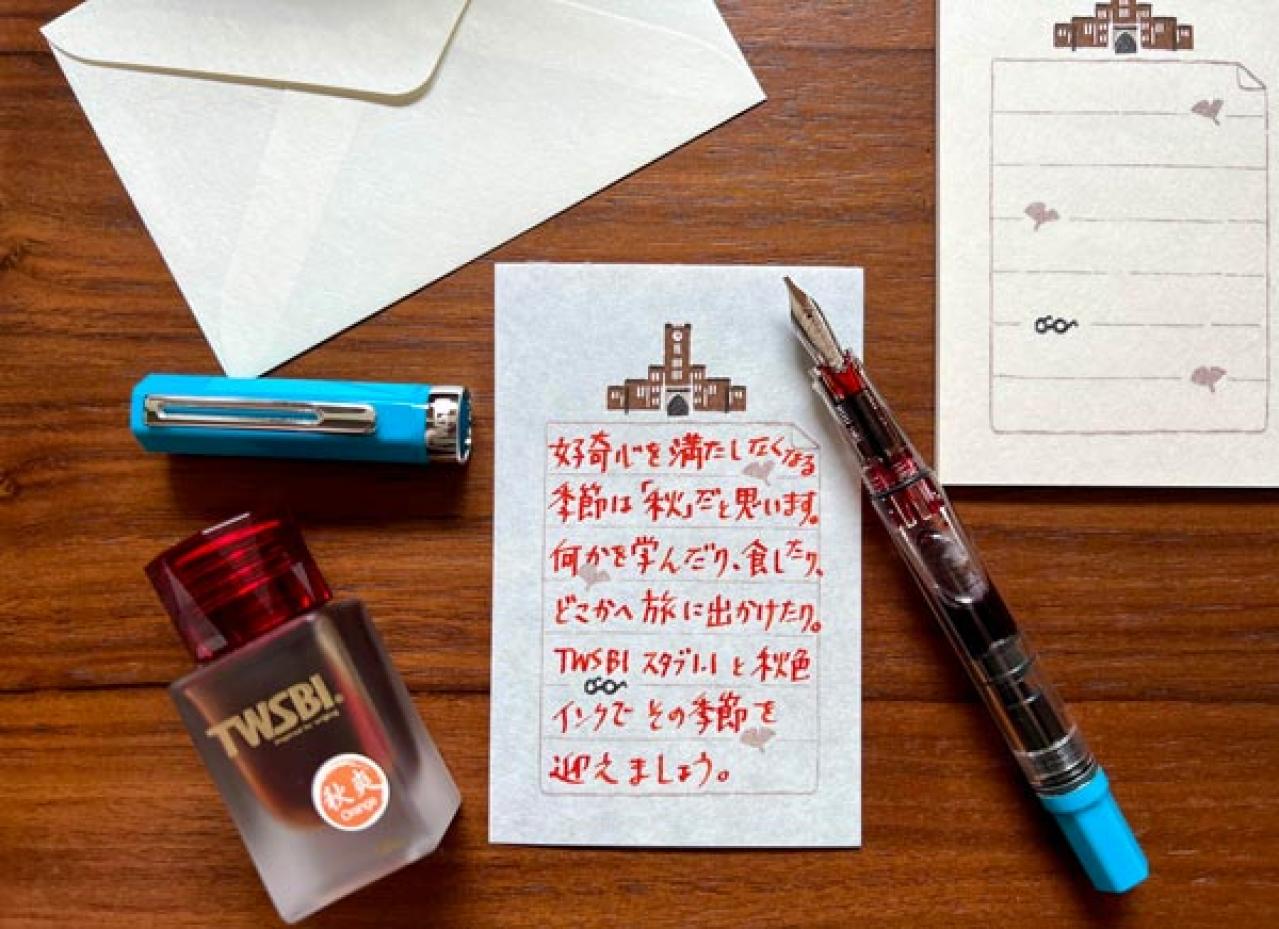 好奇心を満たしたくなる
季節は「秋」だと思います。
何かを学んだり、食したり、
どこかへ旅に出かけたり。
TWSBI スタブ1.1 と 秋色
インクで その季節を
迎えましょう。
TWSBI®
秋爽
Orange